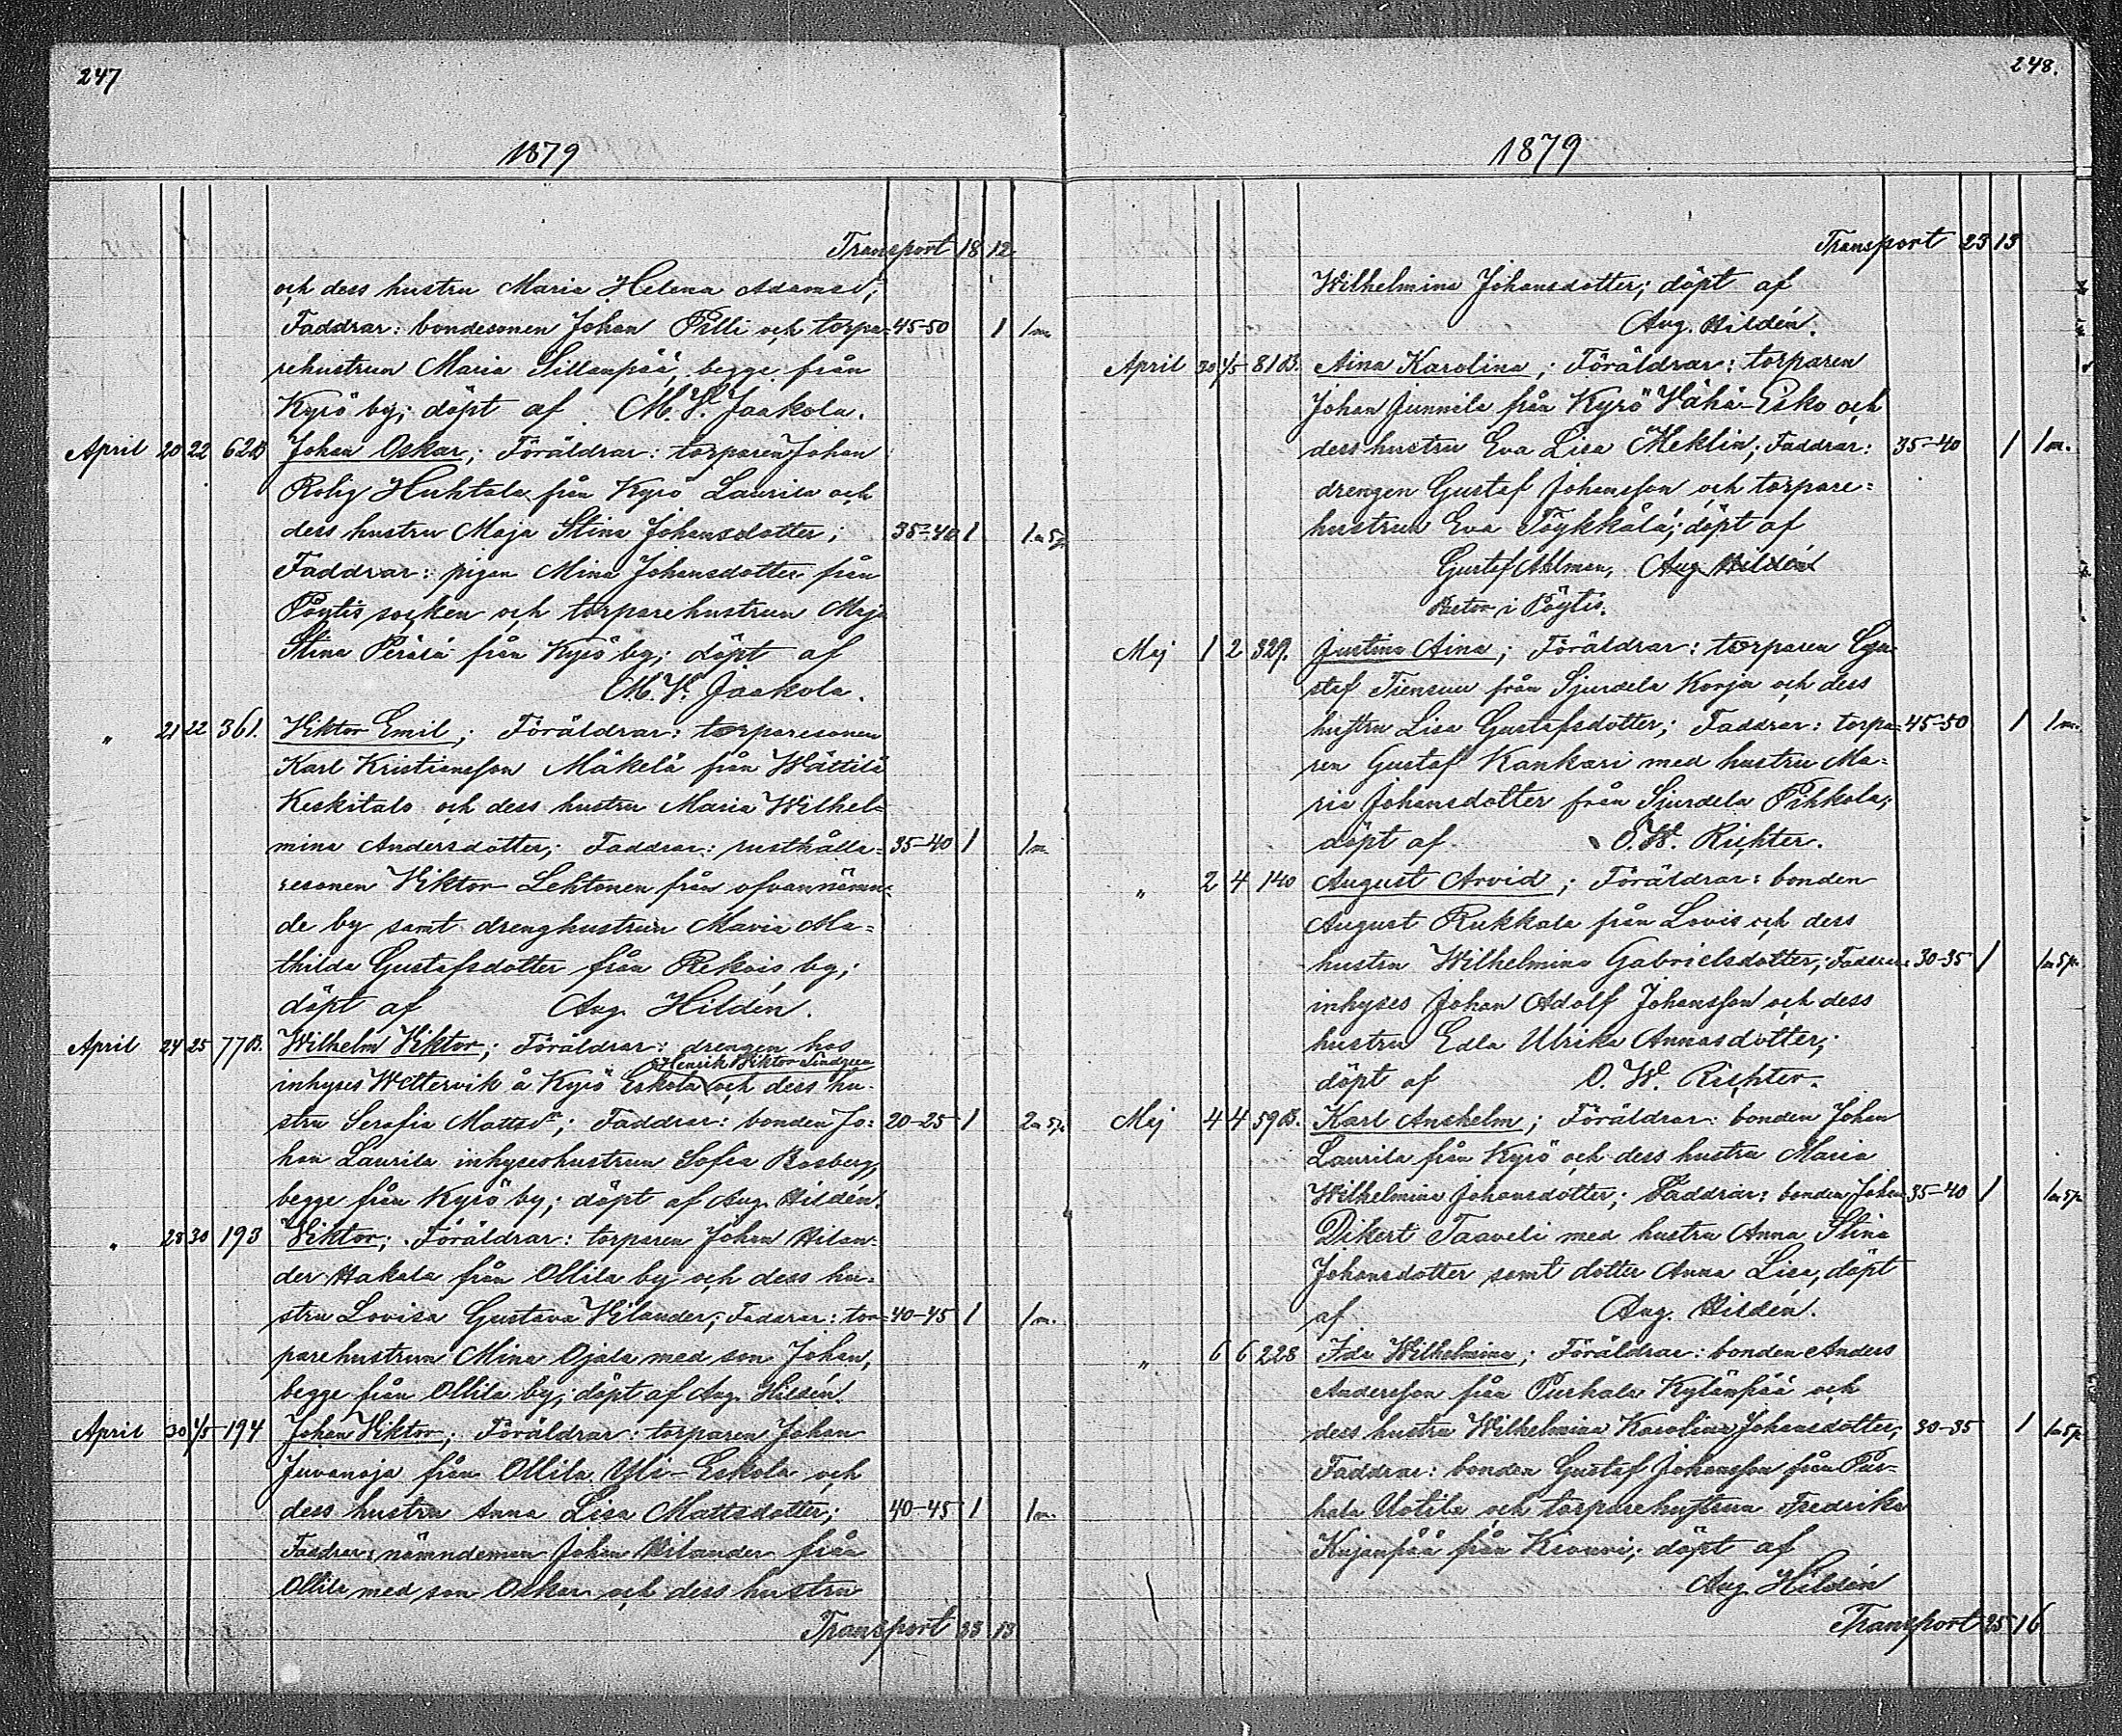 247
1879
Transport 18 12
och dess hustru Maria Helena Adamsd;
Faddrar: bondesonen Johan Pilli och torpa= 45-50 1 1 m.
rehustrun Maria Sillanpää, begge från
Kyrö by; döpt af M. V. Jaakola.
April 20 22 62B Johan Oskar; Föräldrar: torparen Johan
Rolig Huhtala från Kyrö Laurila och
dess hustru Maja Stina Johansdotter; 35-40 1 1 m 5 p.
Faddrar: pigan Mina Johansdotter från
Pöytis socken och torparehustrun Maja
Stina Perälä från Kyrö by; döpt af
M. V. Jaakola.
" 21 22 361. Viktor Emil; Föräldrar: torparesonen
Karl Kristiansson Mäkelä från Wättilä
Keskitalo och dess hustru Maria Wilhel=
mina Andersdotter; Faddrar: rusthålla= 35-40 1 1 m.
resonen Viktor Lehtonen från ofvannämn=
de by samt drenghustrun Maria Ma=
thilda Gustafsdotter från Rekois by;
döpt af Aug. Hildén.
April 24 25 77B. Wilhelm Viktor; Föräldrar: drengen hos
Henrik Wiktor Lindgren
inhyses Wettervik å Kyrö Eskola och dess hu=
stru Serafia Mattsdr; Faddrar: bonden Jo= 20-25 1 2 m 5 p.
han Laurila inhyseshustrun Sofia Bosberg,
begge från Kyrö by; döpt af Aug. Hildén.
" 28 30 193 Viktor; Föräldrar: torparen Johan Vilan=
der Hakala från Ollila by och dess hu=
stru Lovisa Gustava Vilander; Faddrar: tor= 40-45 1 1 m.
parehustrun Mina Ojala med son Johan,
begge från Ollila by; döpt af Aug. Hildén.
April 30 1/5 194 Johan Viktor; Föräldrar: torparen Johan
Juvanoja från Ollila Yli-Eskola och
dess hustru Anna Lisa Mattsdotter; 40-45 1 1 m.
Faddrar: nämndeman Johan Vilander från
Ollila med son Oskar och dess hustru
Transport 23 13
248.
1879
Transport 23 13
Wilhelmina Johansdotter; döpt af
Aug. Hildén.
April 30 1/5 81B. Aina Karolina; Föräldrar: torparen
Johan Junnila från Kyrö Vähä-Esko och
dess hustru Eva Lisa Meklin; Faddrar: 35-40 1 1 m.
drengen Gustaf Johansson och torpare=
hustrun Eva Töykkälä; döpt af
Gustaf Ahlman, Aug Hildén
Pastor i Pöytis.
Maj 1 2 329. Justina Aina; Föräldrar: torparen Gu=
staf Tiensuu från Sjurdela Korja och dess
hustru Lisa Gustafsdotter; Faddrar: torpa= 45-50 1 1 m.
ren Gustaf Kankari med hustru Ma=
ria Johansdotter från Sjurdela Pihkola;
döpt af O. W. Richter.
" 2 4 140 August Arvid; Föräldrar: bonden
August Rukkala från Lovis och dess
hustru Wilhelmina Gabrielsdotter; Faddrar: 30-35 1 1 m 5 p.
inhyses Johan Adolf Johansson och dess
hustru Edla Ulrika Annasdotter;
döpt af O. W. Richter.
Maj 4 4 59B. Karl Anshelm; Föräldrar: bonden Johan
Laurila från Kyrö och dess hustru Maria
Wilhelmina Johansdotter; Faddrar: bonden Johan 35-40 1 1 m 5 p.
Dikert Taaveli med hustru Anna Stina
Johansdotter samt dotter Anna Lisa, döpt
af Aug. Hildén.
" 6 6 228 Ida Wilhelmina; Föräldrar: bonden Anders
Andersson från Purhala Kylänpää och
dess hustru Wilhelmina Karolina Johansdotter; 30-35 1 1 m 5 p.
Faddrar: bonden Gustaf Johansson från Pur=
hala Uotila och torparehustrun Fredrika
Kujanpää från Krouvi; döpt af
Aug. Hildén
Transport 25 16